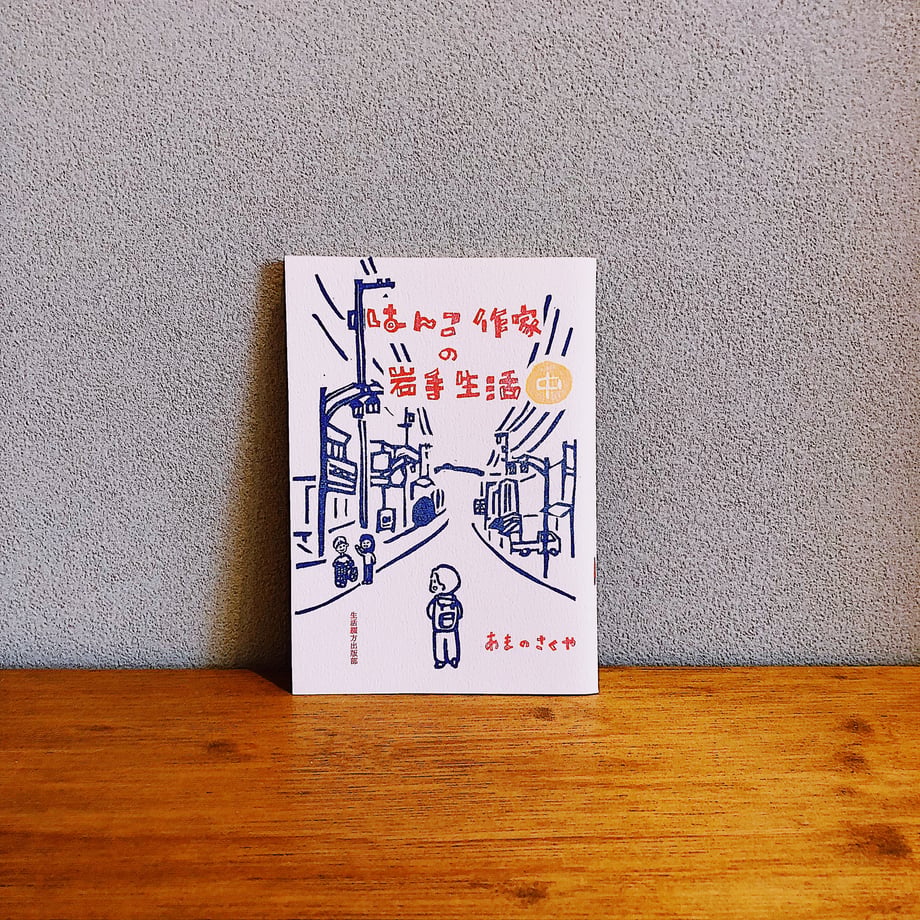 はんこ作家
の
岩手生活 中
あまのさくや
生活綴方出版部